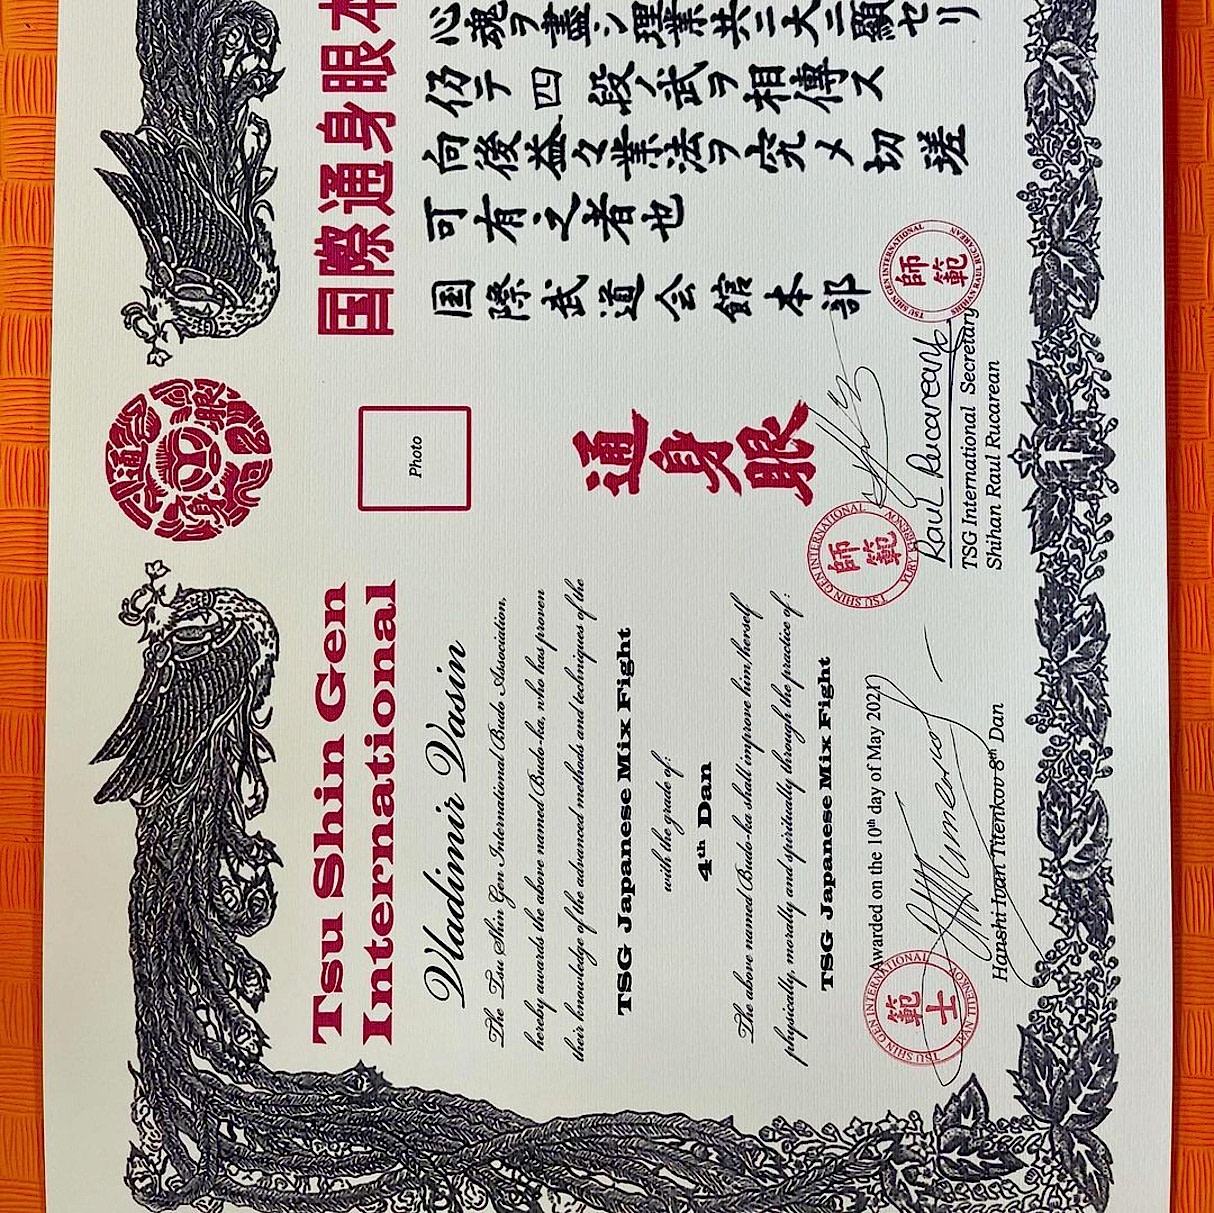 国際通身眼本
Tsu Shin Gen
International
Photo
Vladimir Vasin
The Tsu Shin Gen International Budo Association,
hereby awards the above named Budo-ka, who has proven
their knowledge of the advanced methods and techniques of the
TSG Japanese Mix Fight
with the grade of:
4th Dan
The above named Budo-ka shall improve him/herself
physically, morally and spiritually through the practice of:
TSG Japanese Mix Fight
Awarded on the 10th day of May 2021
Hanshi Ivan Titenkov 8th Dan
TSU SHIN GEN INTERNATIONAL
範士
通身眼
心魂ヲ盡シ理業共ニ大ニ顕セリ
仍テ四段ノ武ヲ相傳ス
向後益々業法ヲ究メ切瑳
可有之者也
国際武道会館本部
TSU SHIN GEN INTERNATIONAL
師範
Raul Rucarean
TSG International Secretary
Shihan Raul Rucarean
TSU SHIN GEN INTERNATIONAL
SHIHAN RAUL RUCAREAN
師範